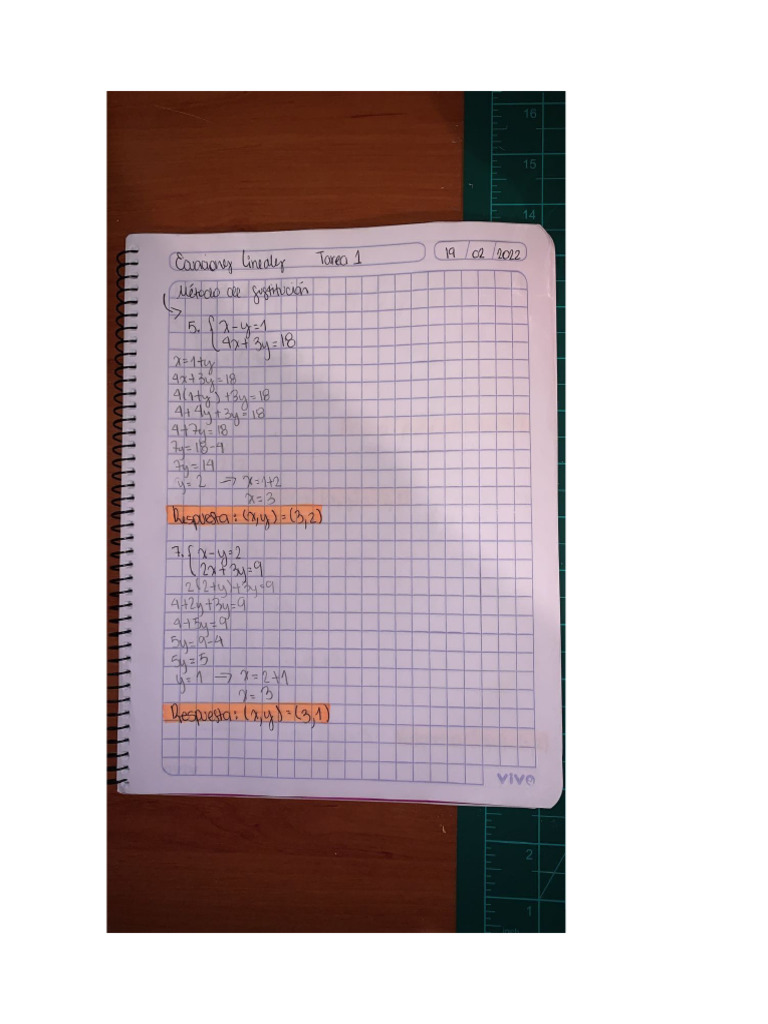 16
15
14
Ecuaciones Lineales Tarea 1
19 / 02 / 2022
Método de Sustitución
5. { x-y=1
4x+3y=18
x=1+y
4x+3y=18
4(1+y)+3y=18
4+4y+3y=18
4+7y=18
7y=18-4
7y=14
y=2 → x=1+2
x=3
Respuesta: (x,y)=(3,2)
7. { x-y=2
2x+3y=9
2(2+y)+3y=9
4+2y+3y=9
4+5y=9
5y=9-4
5y=5
y=1 → x=2+1
x=3
Respuesta: (x,y)=(3,1)
VIVO
2
1
inch